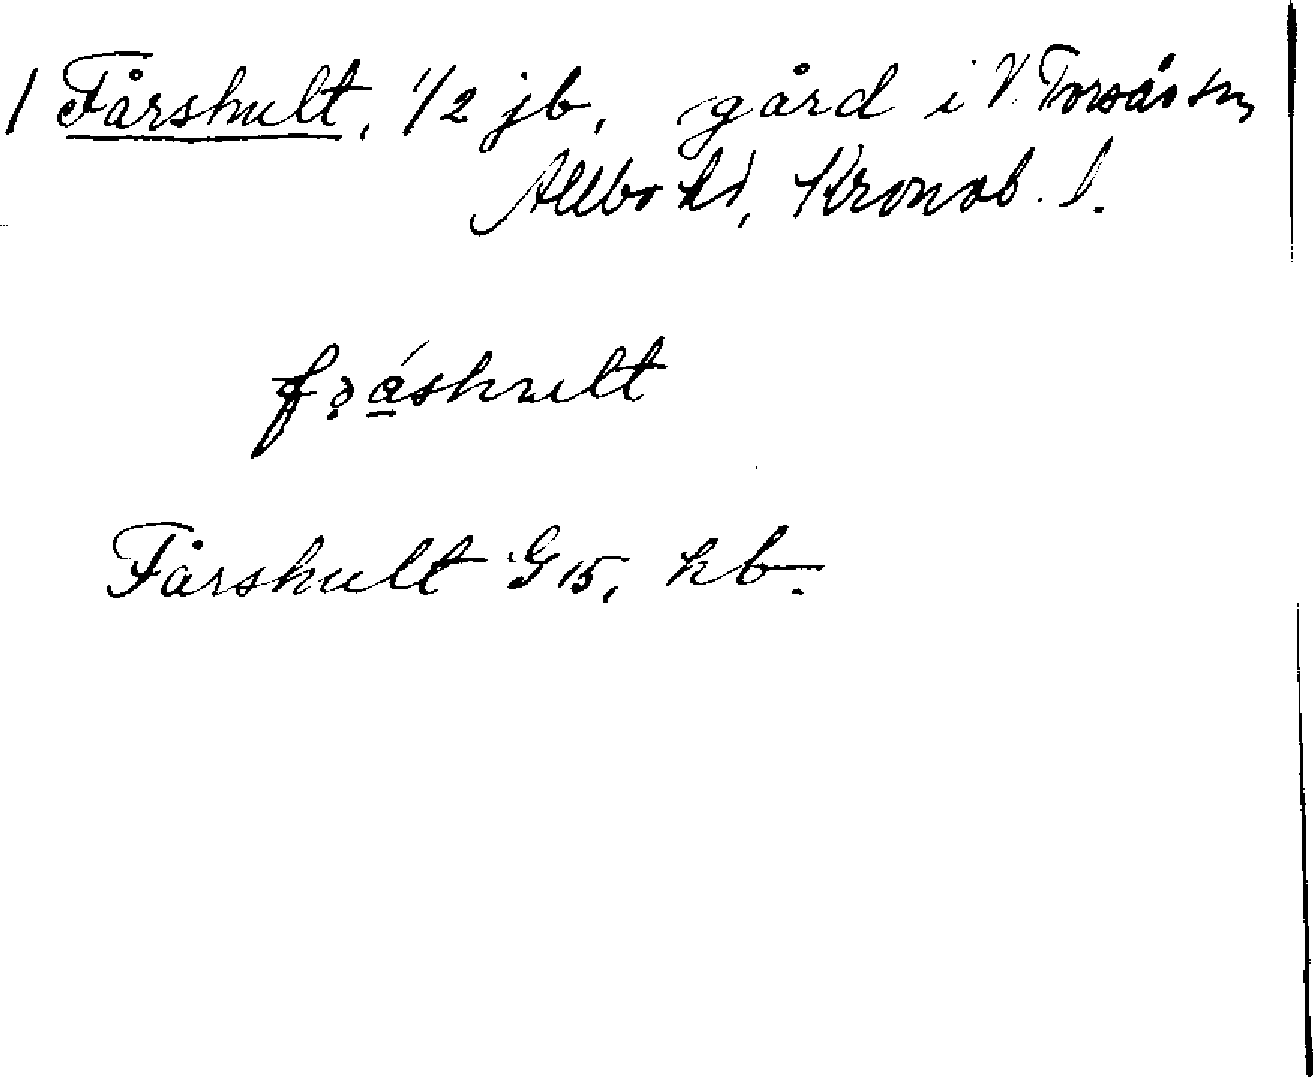 / Fårshult, 1/2 jb, gård i V. Torsås sn,
Allbo hd, Kronob. l.
Fårshult G 15, hb.